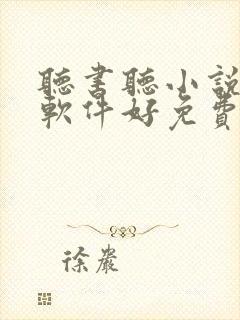 聽書聽小說
軟件好免費
徐嚴